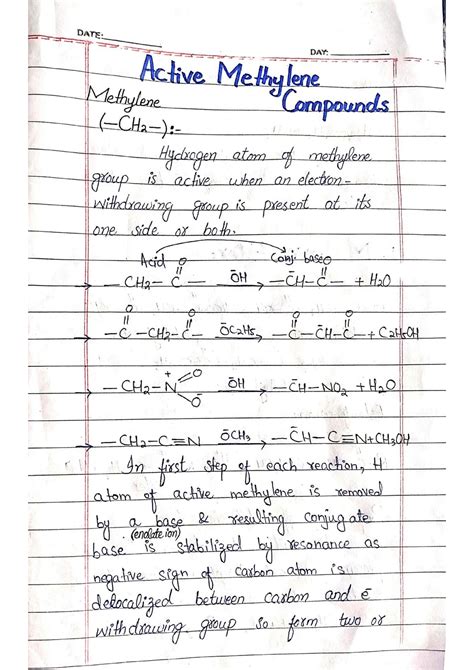 DATE:
DAY:
Active Methylene
Compounds
Methylene
(-CH2-):-
Hydrogen atom of methylene
group is active when an electron-
withdrawing group is present at its
one side or both.
Acid Conj. base
O O
-CH2-C- ŌH → -C̄H-C- + H2O
O O O O
→ -C-CH2-C- ŌC2H5 → -C-C̄H-C- + C2H5OH
→ -CH2-N⁺ O O⁻ ŌH → -C̄H-NO2 + H2O
→ -CH2-C≡N ŌCH3 → -C̄H-C≡N+CH3OH
In first step of each reaction, H
atom of active methylene is removed
by a base & resulting conjugate
(enolate ion)
base is stabilized by resonance as
negative sign of carbon atom is
delocalized between carbon and ē
withdrawing group so form two or